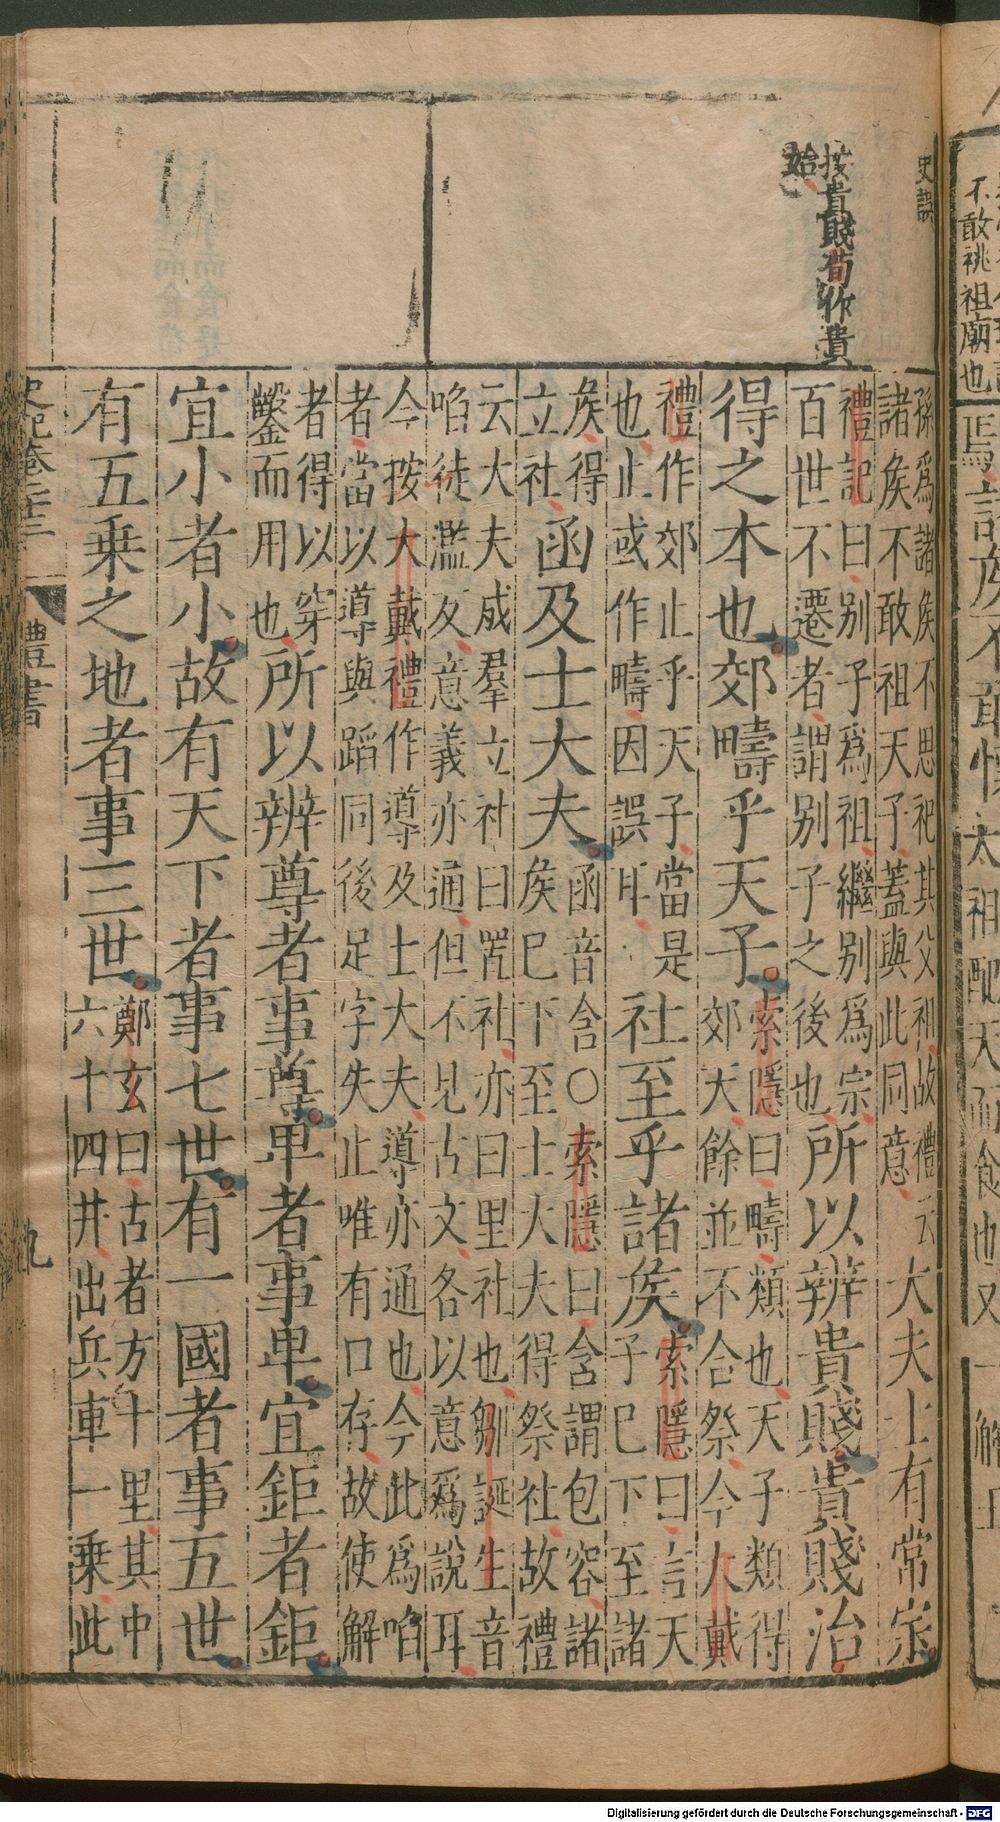 史誤
按貴賤荀作貴
始
孫爲諸矦不思祀其父祖故禮云
諸矦不敢祖天子蓋與此同意
大夫士有常宗
禮記曰别子爲祖繼别爲宗
百世不遷者謂别子之後也
所以辨貴賤貴賤治
得之本也郊疇乎天子
索隱曰疇類也天子類得
郊天餘並不合祭今大戴
禮作郊止乎天子當是
也止或作疇因誤耳
社至乎諸矦
索隱曰言天
子巳下至諸
矦得
立社
函及士大夫
函音含〇索隱曰含謂包容諸
矦巳下至士大夫得祭社故禮
云大夫成羣立社曰置社亦曰里社也鄒誕生音
啗徒濫反意義亦通但不見古文各以意爲說耳
今按大戴禮作導及士大夫導亦通也今此爲啗
者當以導與蹈同後足字失止唯有口存故使解
者得以穿
鑿而用也
所以辨尊者事尊卑者事卑宜鉅者鉅
宜小者小故有天下者事七世有一國者事五世
有五乘之地者事三世
鄭玄曰古者方十里其中
六十四井出兵車一乘此
史記卷二十三
禮書
九
不敢祧祖廟也
太祖配天而食也又
Digitalisierung gefördert durch die Deutsche Forschungsgemeinschaft - DFG